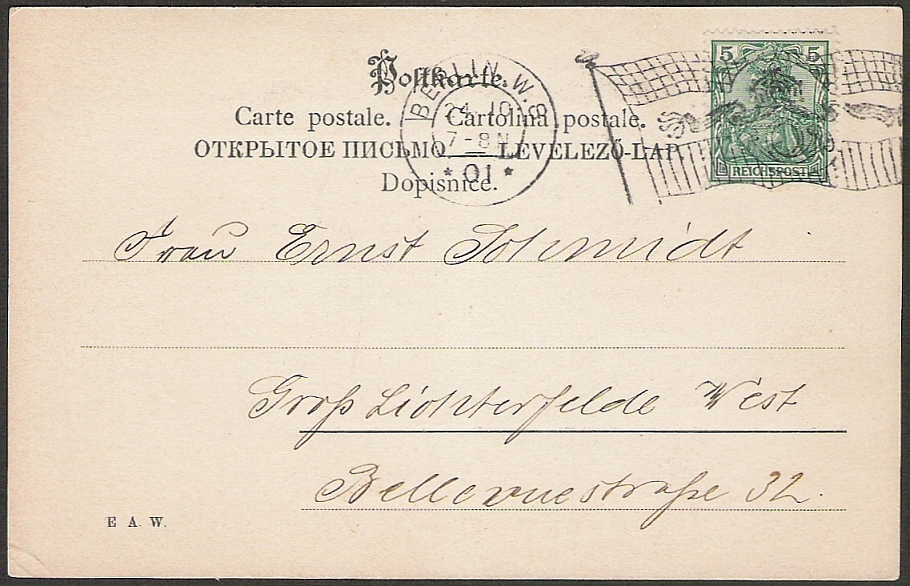 Postkarte.
Carte postale. Cartolina postale.
ОТКРЫТОЕ ПИСЬМО. LEVELEZŐ-LAP
Dopisnice.
BERLIN.W.
24.10
7-8N
* 01 *
5 5
REICHSPOST
Frau Ernst Schmidt
Groß Lichterfelde West
Bellevuestraße 32.
E. A. W.